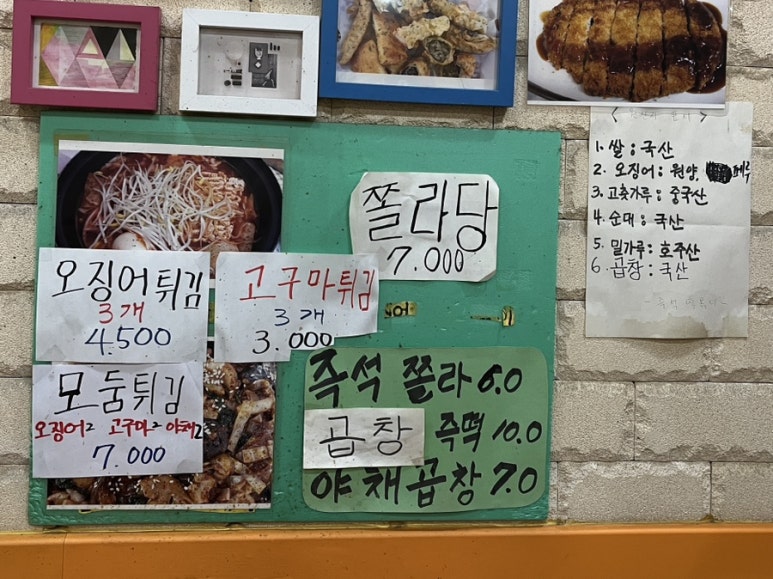 쫄라당
7.000
오징어튀김
3개
4.500
고구마튀김
3개
3.000
모둠튀김
오징어2 고구마2 야채2
7.000
즉석 쫄라 6.0
곱창 즉떡 10.0
야채곱창 7.0
1. 쌀 : 국산
2. 오징어 : 원양, 페루
3. 고춧가루 : 중국산
4. 순대 : 국산
5. 밀가루 : 호주산
6. 곱창 : 국산